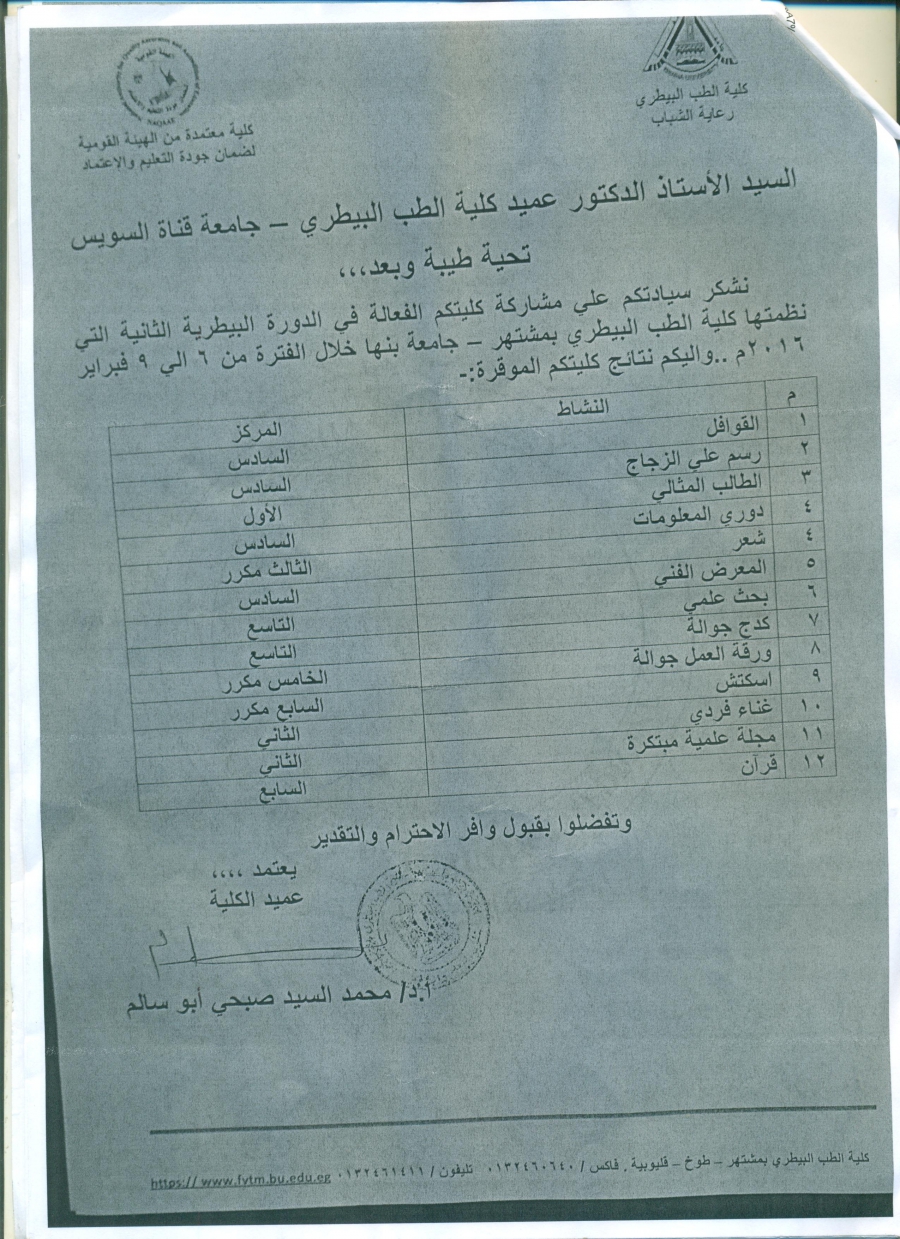 كلية الطب البيطري
رعاية الشباب
كلية معتمدة من الهيئة القومية
لضمان جودة التعليم والاعتماد
السيد الأستاذ الدكتور عميد كلية الطب البيطري – جامعة قناة السويس
تحية طيبة وبعد،،،
نشكر سيادتكم علي مشاركة كليتكم الفعالة في الدورة البيطرية الثانية التي
نظمتها كلية الطب البيطري بمشتهر – جامعة بنها خلال الفترة من ٦ الي ٩ فبراير
٢٠١٦م ..واليكم نتائج كليتكم الموقرة:-
م النشاط المركز
١ القوافل السادس
٢ رسم علي الزجاج السادس
٣ الطالب المثالي الأول
٤ دوري المعلومات السادس
٤ شعر الثالث مكرر
٥ المعرض الفني السادس
٦ بحث علمي التاسع
٧ كدج جوالة التاسع
٨ ورقة العمل جوالة الخامس مكرر
٩ اسكتش السابع مكرر
١٠ غناء فردي الثاني
١١ مجلة علمية مبتكرة الثاني
١٢ قرآن السابع
وتفضلوا بقبول وافر الاحترام والتقدير
يعتمد ،،،،
عميد الكلية
ا.د/ محمد السيد صبحي أبو سالم
كلية الطب البيطري بمشتهر – طوخ – قليوبية . فاكس / ٠١٣٢٤٦٠٦٤٠ تليفون / ٠١٣٢٤٦١٤١١ https:// www.fvtm.bu.edu.eg